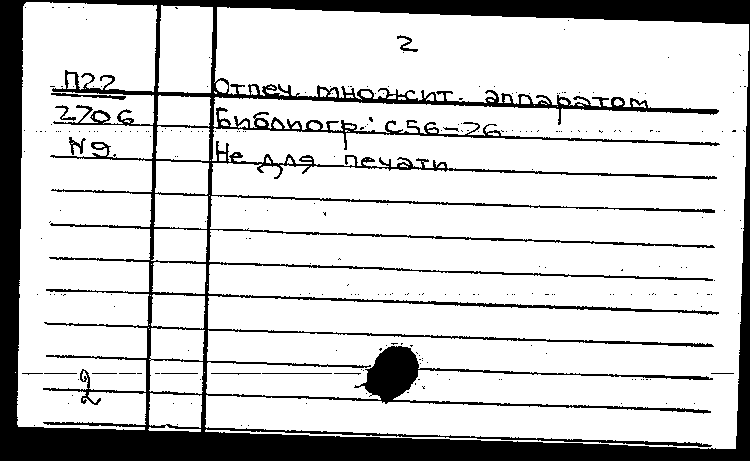 2
П22 Отпеч. множит. аппаратом
2706 Библиогр.: с56-76
N9. Не для печати
2